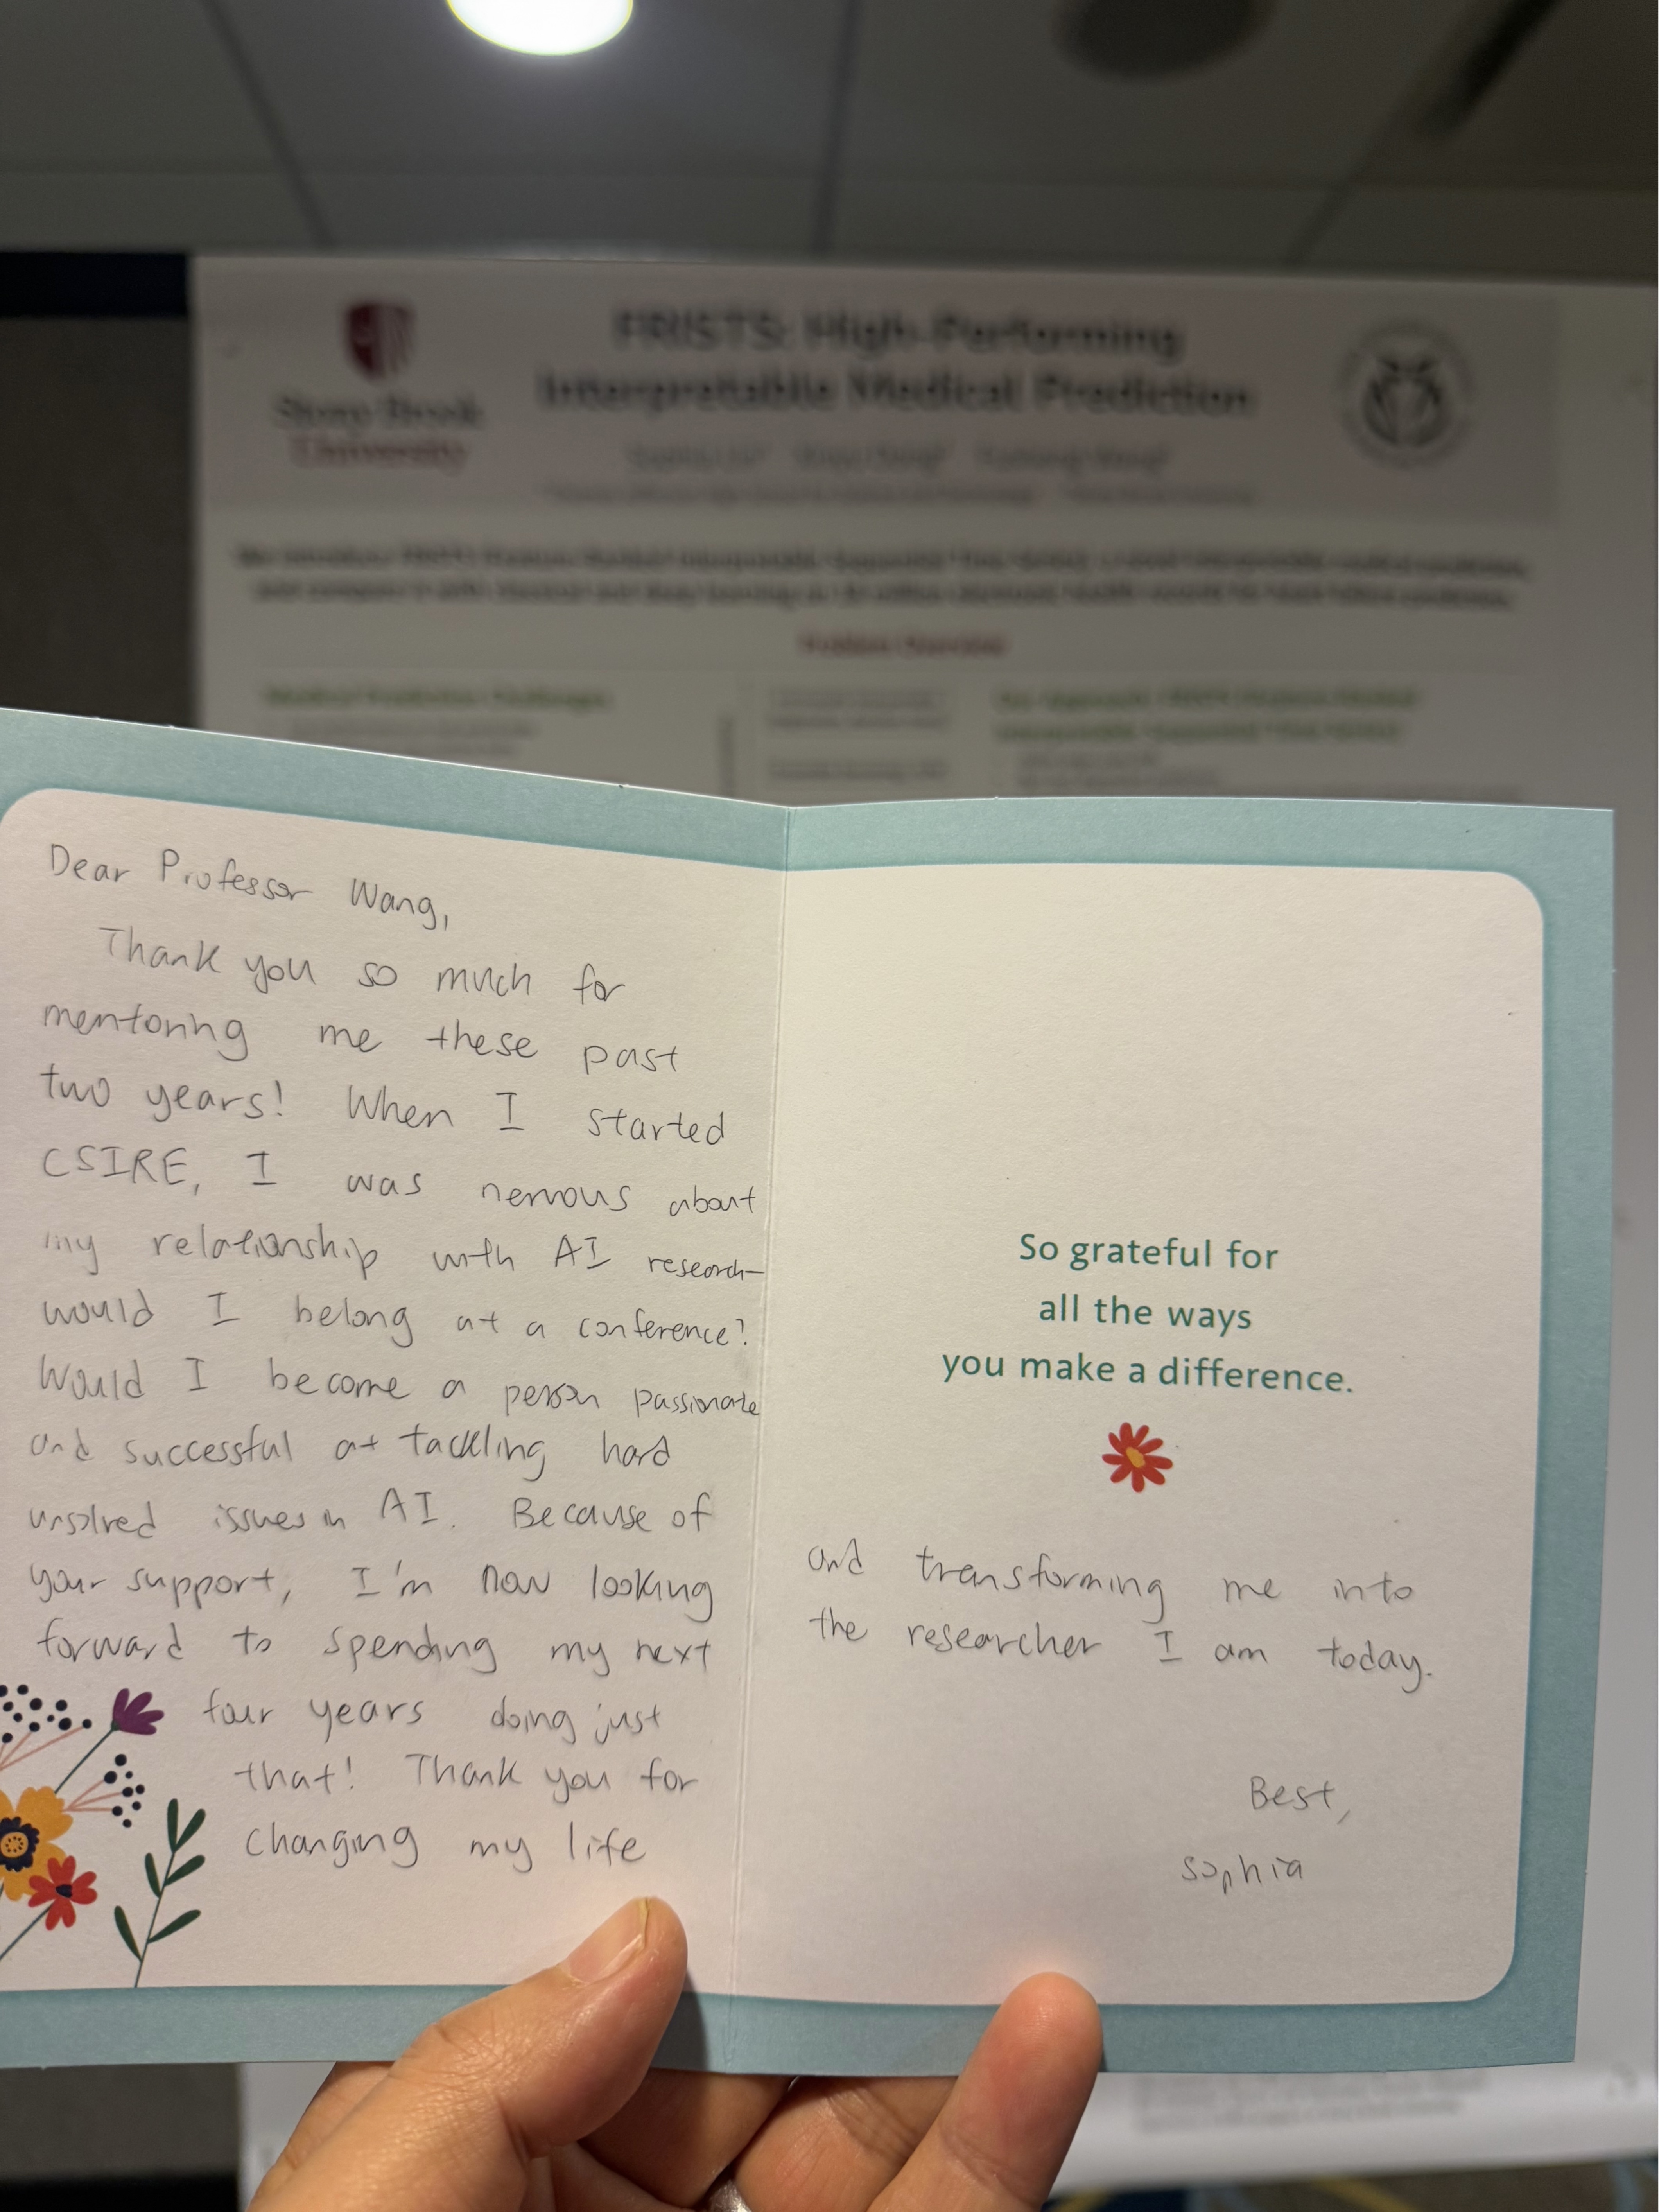 FRISTS: High-Performing
Interpretable Medical Prediction
Stony Brook
University
Problem Overview
Medical Prediction Challenges
Dear Professor Wang,
Thank you so much for
mentoring me these past
two years! When I started
CSIRE, I was nervous about
my relationship with AI research—
would I belong at a conference?
Would I become a person passionate
and successful at tackling hard
unsolved issues in AI. Because of
your support, I'm now looking
forward to spending my next
four years doing just
that! Thank you for
changing my life
So grateful for
all the ways
you make a difference.
and transforming me into
the researcher I am today.
Best,
Sophia